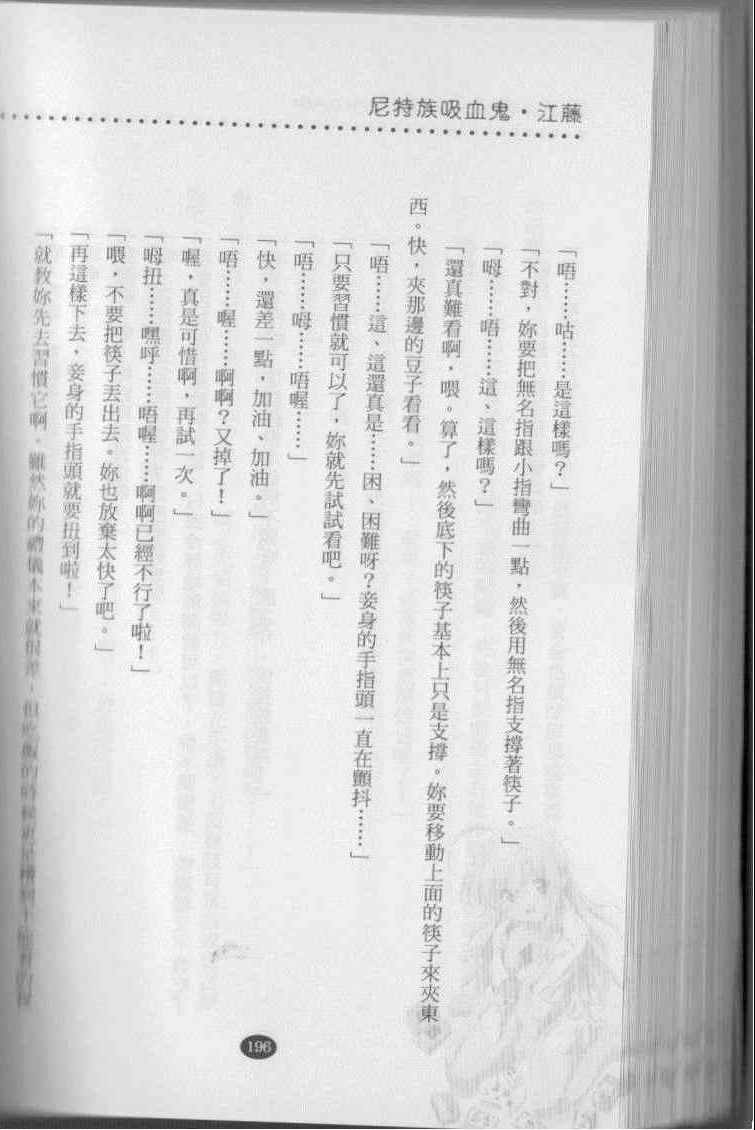 尼特族吸血鬼・江藤
「唔……咕……是這樣嗎？」
「不對，妳要把無名指跟小指彎曲一點，然後用無名指支撐著筷子。」
「呣……唔……這、這樣嗎？」
「還真難看啊，喂。算了，然後底下的筷子基本上只是支撐。妳要移動上面的筷子來夾東
西。快，夾那邊的豆子看看。」
「唔……這、這還真是……困、困難呀？妾身的手指頭一直在顫抖……」
「只要習慣就可以了，妳就先試試看吧。」
「唔……呣……唔喔……」
「快，還差一點，加油、加油。」
「唔……喔……啊啊？又掉了！」
「喔，真是可惜啊，再試一次。」
「呣扭……嘿呼……唔喔……啊啊已經不行了啦！」
「喂，不要把筷子丟出去。妳也放棄太快了吧。」
「再這樣下去，妾身的手指頭就要扭到啦！」
「就教妳先去習慣它啊。雖然妳的禮儀本來就很差，但吃飯的時候
196